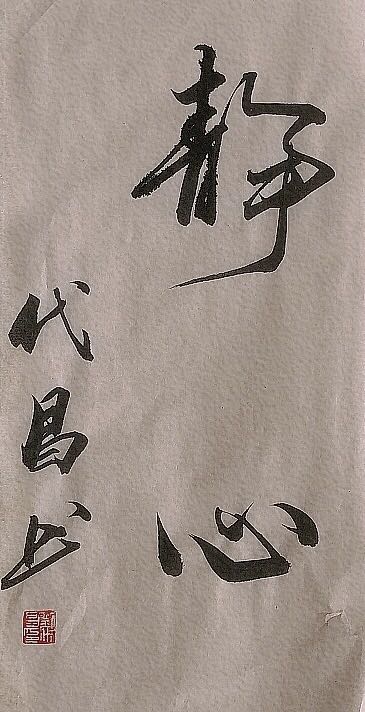 静心
代昌书